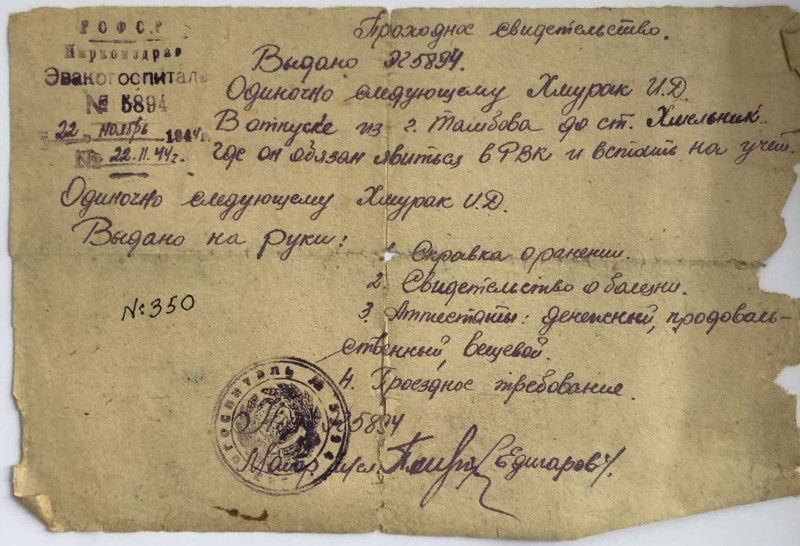 Р О Ф С Р
Наркомздрав
Эвакогоспиталь
№ 5894
22 ноябрь 1944 г.
22.11.44г.
Проходное свидетельство.
Выдано ЭГ5894.
Одиночно следующему Хмурак И.Д.
В отпуске из г. Тамбова до ст. Хмельник.
где он обязан явиться в РВК и встать на учет.
Одиночно следующему Хмурак И.Д.
Выдано на руки:
1. Справка о ранении.
2. Свидетельство о болезни.
3. Аттестаты: денежный, продоволь-
ственный, вещевой.
4. Проездное требование.
№350
ЭГ5894
Майор м/сл. Едигаров